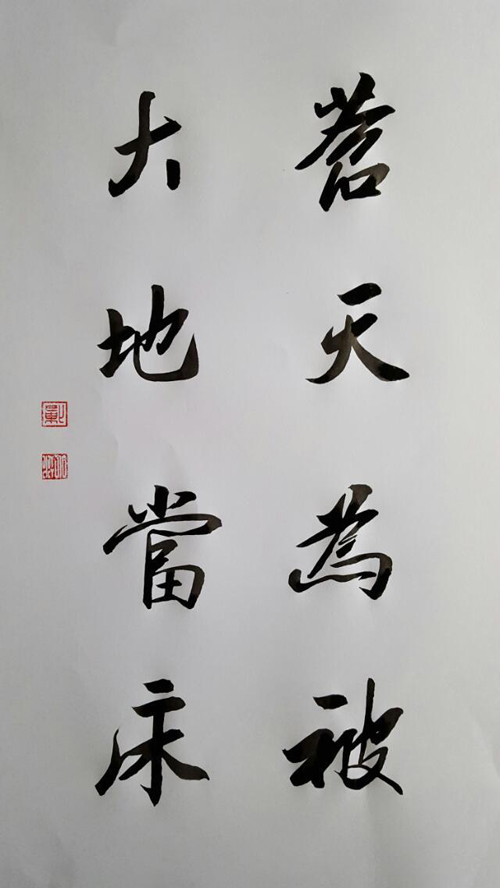 蒼天為被
大地當床